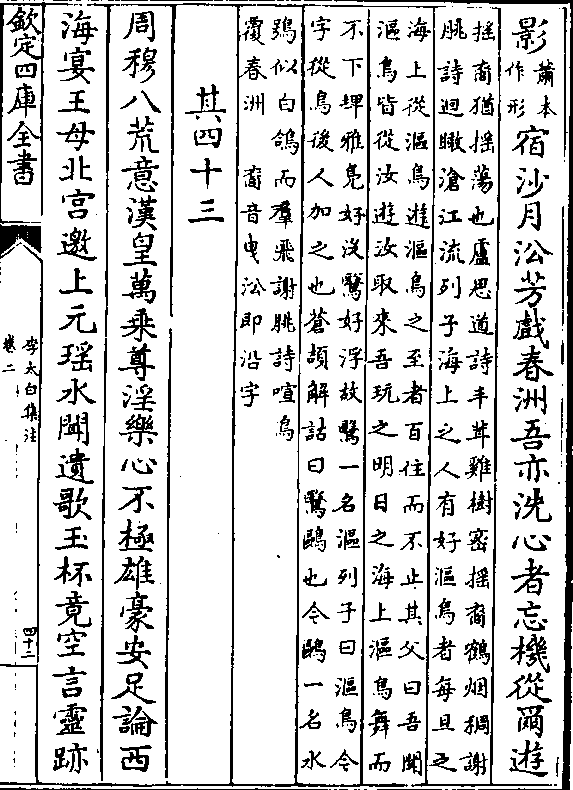 影蕭本作形宿沙月沿芳戲春洲吾亦洗心者忘機從爾遊
揺裔猶揺蕩也盧思道詩丰茸雞樹宻揺裔鶴烟稠謝
朓詩迥瞰滄江流列子海上之人有好漚鳥者每旦之
海上從漚鳥遊漚鳥之至者百住而不止其父曰吾聞
漚鳥皆從汝遊汝取來吾玩之明日之海上漚鳥舞而
不下埤雅鳬好沒鷖好浮故鷖一名漚列子曰漚鳥今
字從鳥後人加之也蒼頡解詁曰鷖鷗也今鷗一名水
鴞似白鴿而羣飛謝朓詩喧鳥
覆春洲 裔音曳㳂即沿字
其四十三
周穆八荒意漢皇萬乘尊淫樂心不極雄豪安足論西
海宴王母北宮邀上元瑶水聞遺歌玉杯竟空言靈跡
欽定四庫全書
李太白集注
卷二
四十二